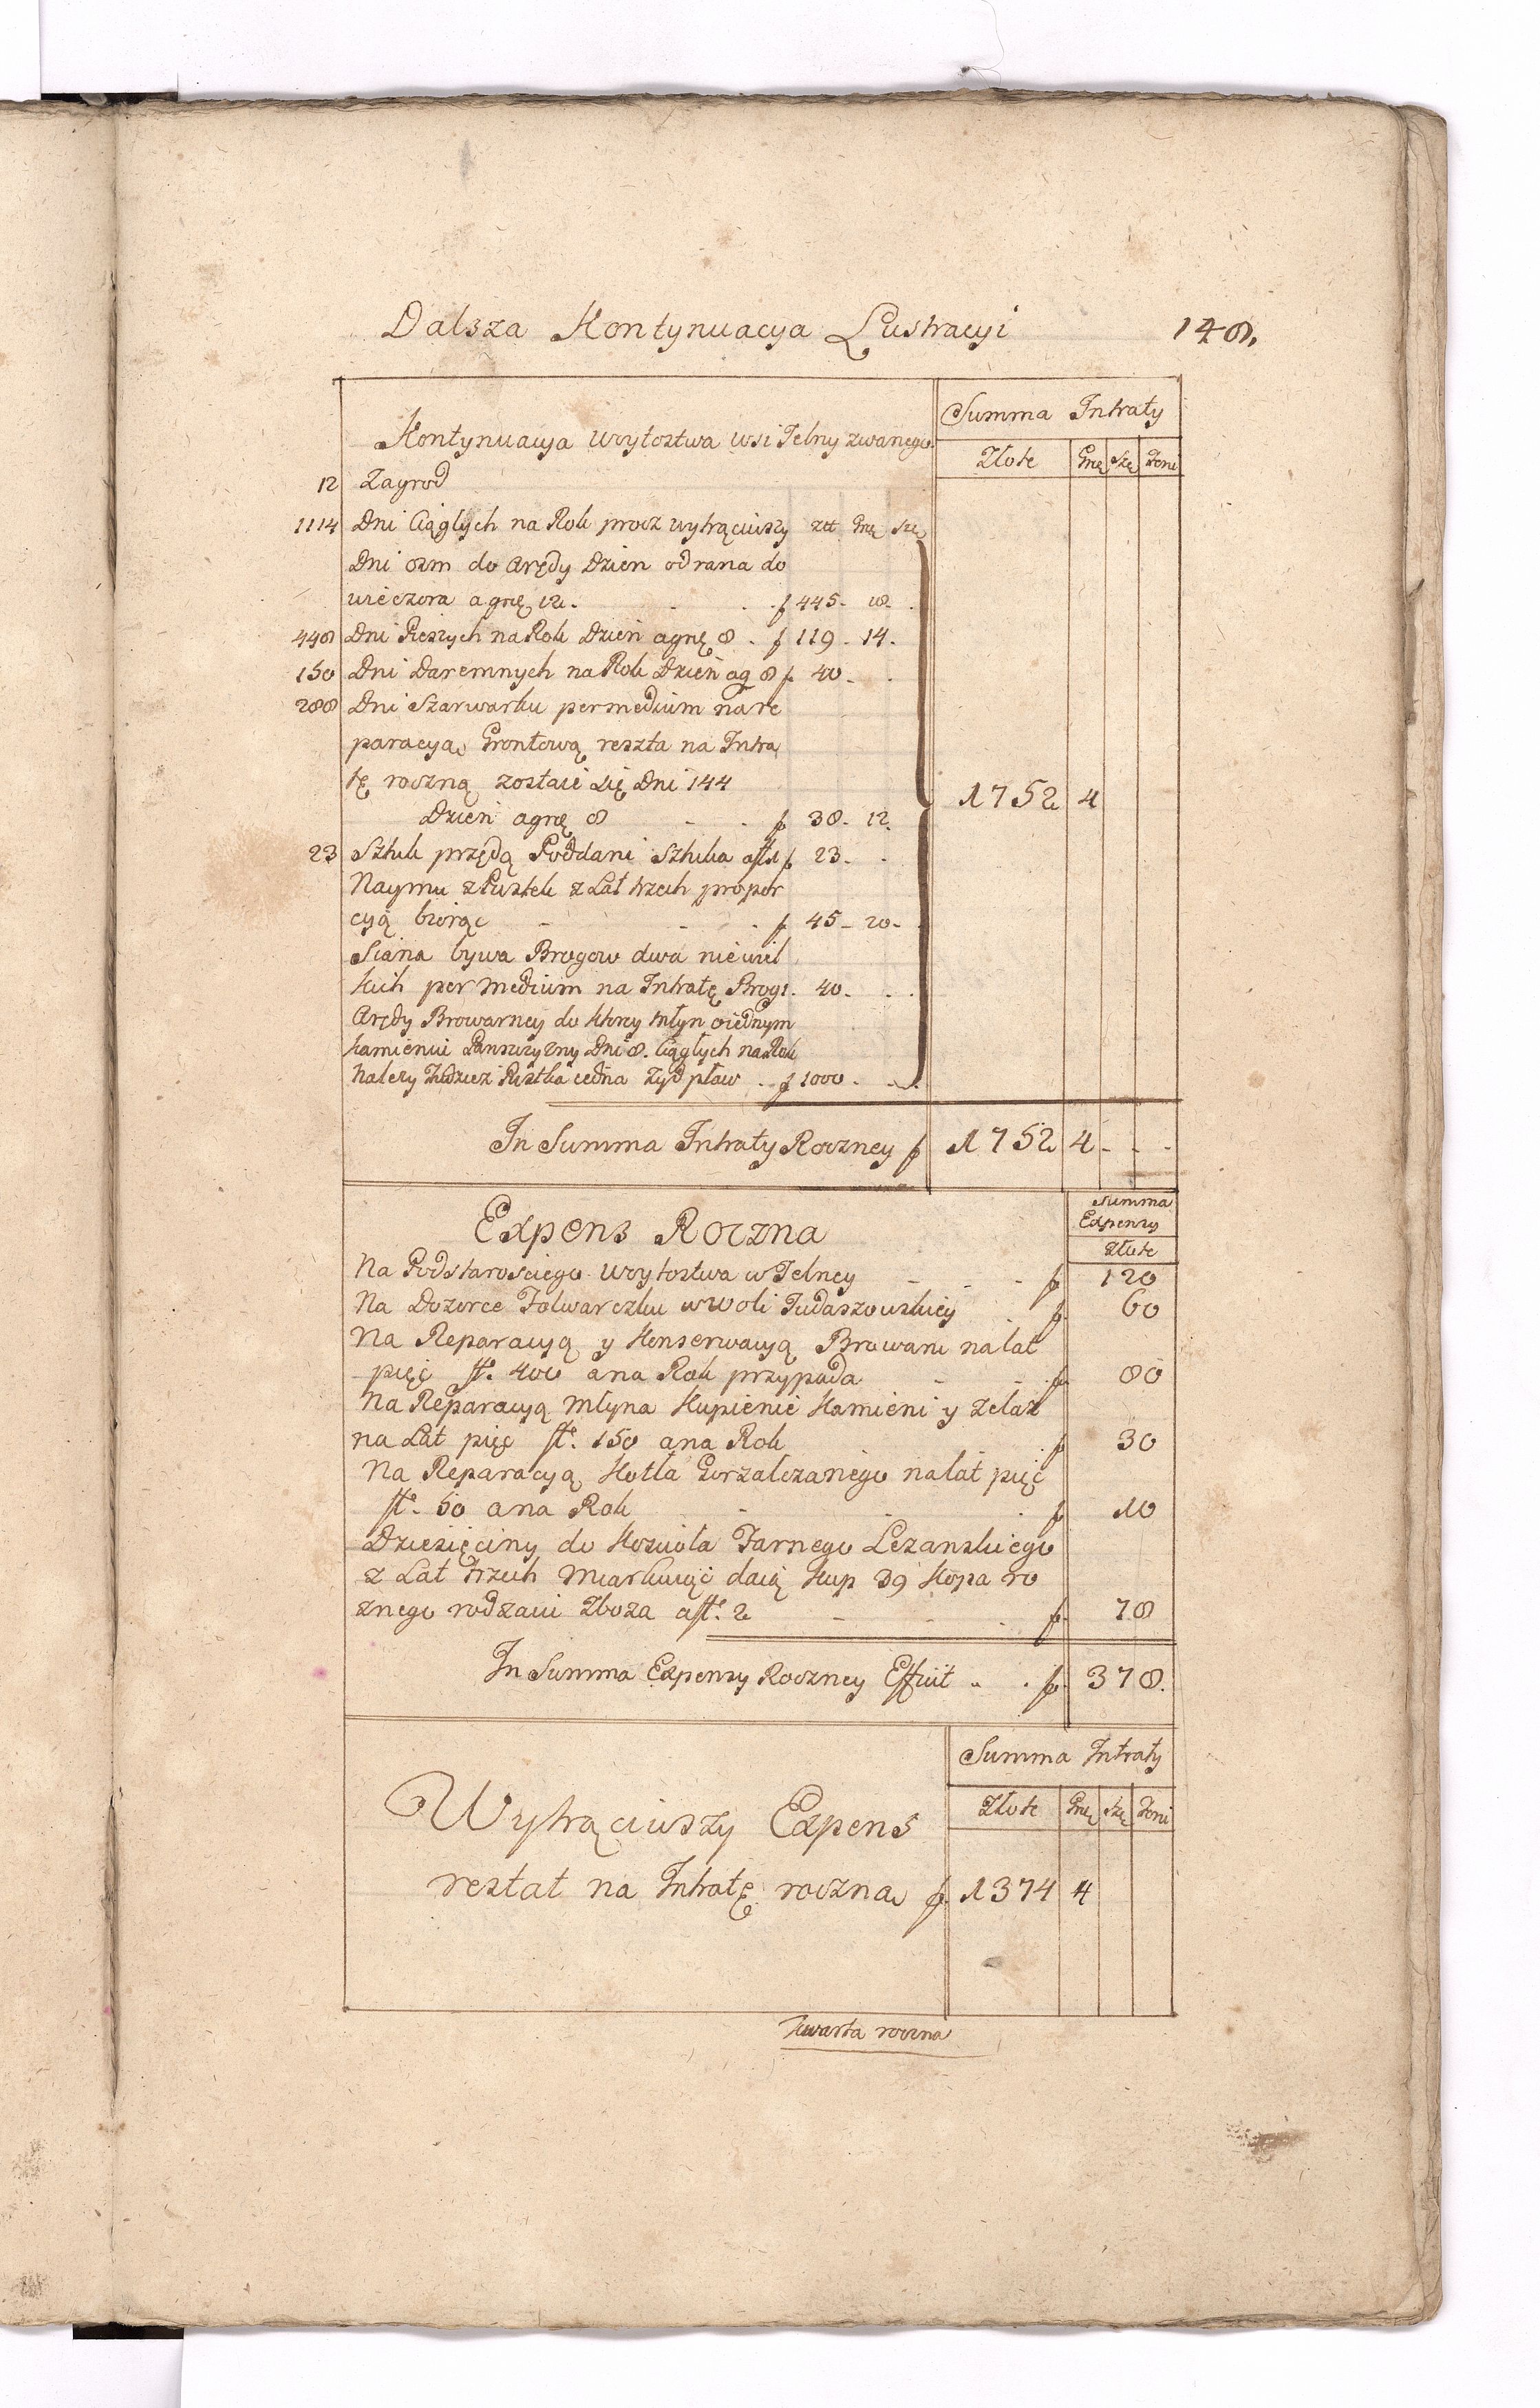 Dalsza Kontynuacya Lustracyi 148.
Kontynuacya Woytostwa wsi Jelny zwanego
Summa Intraty
Złote Grę Szę Feni
12 Zagrod
1114 Dni Ciąglych na Rok procz wytrąciwszy ztt Grę Szę
Dni osm do Arędy Dzien od rana do
wieczora a grę 12. f 445. 18.
448 Dni Pieszych na Rok Dzień a grę 8. f 119. 14.
150 Dni Daremnych na Rok Dzień a g 8 f 40.
288 Dni Szarwarku per medium na re
paracyą Grontową reszta na Intra
tę roczną zostaie się Dni 144
Dzień a grę 8 f 38. 12.
1752 4
23 Sztuk przędą Poddani Sztuka a ft 1 f 23.
Naymu z Pustek z Lat trzech propor
cyą biorąc f 45. 20.
Siana bywa Brogow dwa niewiel
kich per medium na Intratę Brog 1. 40.
Arędy Browarney do ktorey Młyn o iednym
kamieniu Panszczyzny Dni 8. Ciągłych na Rok
Należy Tudziez Pustka iedna Zyd pław f 1000.
In Summa Intraty Roczney f 1752 4
Expens Roczna
Summa
Expensy
Złote
Na Podstarosciego Woytostwa w Jelney f 120
Na Dozorce Folwarczku w Woli Judaszowskiey f 60
Na Reparacyą y Konserwacyą Browaru na lat
pięć ft. 400 a na Rok przypada f 80
Na Reparacyą Młyna Kupienie Kamieni y Zelaz
na Lat pięć ft. 150 a na Rok f 30
Na Reparacyą Kotła Gorzalczanego na lat pięć
ft. 50 a na Rok f 10
Dziesięciny do Kosciola Farnego Lezanskiego
z Lat Trzech Miarkuiąc daią Kup 39 Kopa ro
znego rodzaiu Zboza a ft. 2 f 78
In Summa Expensy Roczney Effuit f 378.
Summa Intraty
Złote Grę Szę Feni
Wytrąciwszy Expens
restat na Intratę roczną f 1374 4
Kwarta roczna